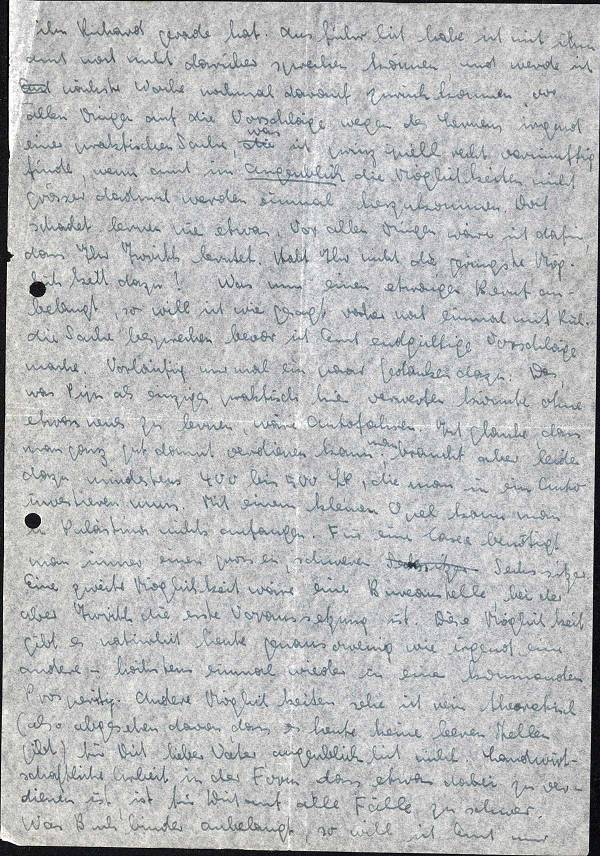 ihn Richard gerade hat. Ausführlich habe ich mit ihm
noch nicht darüber sprechen können und werde ich
nächste Woche nochmal darauf zurückkommen vor
allen Dingen auf die Vorschläge wegen des Lernens irgend
einer praktischen Sache, was ich prinzipiell recht vernünftig
finde, wenn auch im Augenblick die Möglichkeiten nicht
grösser dadurch werden einmal herzukommen. Doch
schadet lernen nie etwas. Vor allen Dingen wäre ich dafür
dass Ihr Iwrith lerntet. Habt Ihr nicht die geringste Mög-
lichkeit dazu! Was nun einen etwaigen Beruf an-
belangt, so will ich wie gesagt vorher noch einmal mit
die Sache besprechen bevor ich Euch endgültige Vorschläge
mache. Vorläufig nur mal ein paar Gedanken dazu. Das,
was als einziges praktisch hier verwerten könnte ohne
etwas neues zu lernen, wäre Autofahren. Ich glaube dass
man ganz gut damit verdienen kann, man braucht aber leider
dazu mindestens 400 bis 500 , die man in ein Auto
investieren muss. Mit einem kleinen Opel kann man
in Palästina nichts anfangen. Für eine Taxe benötigt
man immer einen grossen, schweren Sechssitzer.
Eine zweite Möglichkeit wäre eine Büroanstellung, bei der
aber Iwrith die erste Voraussetzung ist. Diese Möglichkeit
gibt es natürlich heute genausowenig wie irgend eine
andere – höchstens einmal wieder in einer kommenden
Prosperity. Andere Möglichkeiten sehe ich rein theoretisch
(also abgesehen davon dass es heute keine leeren Stellen
gibt) für Dich lieber Vater augenblicklich nicht. Landwirt-
schaftliche Arbeit in der Form dass etwas dabei zu ver-
dienen ist, ist für Dich auf alle Fälle zu schwer.
Was Buchbinder anbelangt, so will ich Euch nur